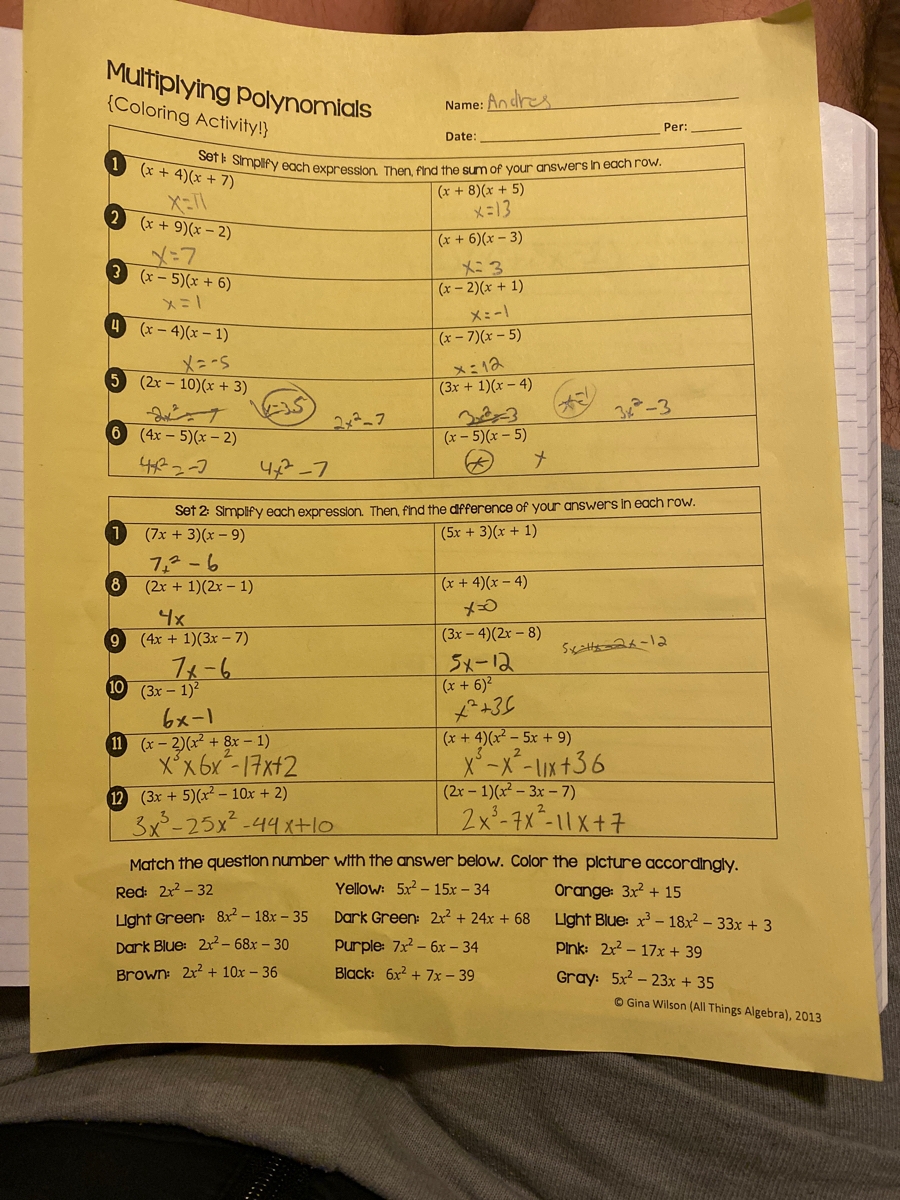 Multiplying Polynomials
{Coloring Activity!}
Name: Andres
Date: Per:
Set 1: Simplify each expression. Then, find the sum of your answers in each row.
1 (x + 4)(x + 7) (x + 8)(x + 5)
x=11 x=13
2 (x + 9)(x − 2) (x + 6)(x − 3)
x=7 x=3
3 (x − 5)(x + 6) (x − 2)(x + 1)
x=1 x=-1
4 (x − 4)(x − 1) (x − 7)(x − 5)
x=-5 x=12
5 (2x − 10)(x + 3) (3x + 1)(x − 4)
2x²-7 3x²-3 3x²-3
6 (4x − 5)(x − 2) (x − 5)(x − 5)
4x²=-7 4x²-7 x x
Set 2: Simplify each expression. Then, find the difference of your answers in each row.
7 (7x + 3)(x − 9) (5x + 3)(x + 1)
7x²-6
8 (2x + 1)(2x − 1) (x + 4)(x − 4)
4x x=0
9 (4x + 1)(3x − 7) (3x − 4)(2x − 8)
7x-6 5x-12
10 (3x − 1)² (x + 6)²
6x-1 x²+36
11 (x − 2)(x² + 8x − 1) (x + 4)(x² − 5x + 9)
x³x6x²-17x+2 x³-x²-11x+36
12 (3x + 5)(x² − 10x + 2) (2x − 1)(x² − 3x − 7)
3x³-25x²-44x+10 2x³-7x²-11x+7
Match the question number with the answer below. Color the picture accordingly.
Red: 2x² − 32 Yellow: 5x² − 15x − 34 Orange: 3x² + 15
Light Green: 8x² − 18x − 35 Dark Green: 2x² + 24x + 68 Light Blue: x³ − 18x² − 33x + 3
Dark Blue: 2x² − 68x − 30 Purple: 7x² − 6x − 34 Pink: 2x² − 17x + 39
Brown: 2x² + 10x − 36 Black: 6x² + 7x − 39 Gray: 5x² − 23x + 35
© Gina Wilson (All Things Algebra), 2013